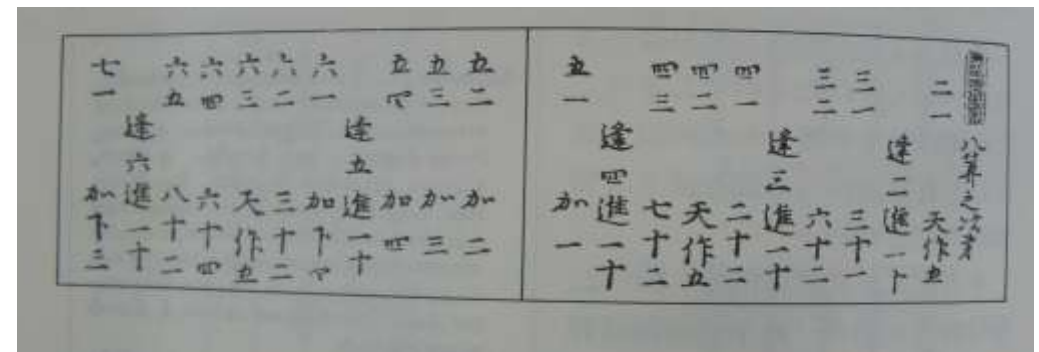 八算之次才
二一 天作五
逢二進一十
三一 三十一
三二 六十二
逢三進一十
四一 二十二
四二 天作五
四三 七十二
逢四進一十
五一 加一
五二 加二
五三 加三
五四 加四
逢五進一十
六一 加下四
六二 三十二
六三 天作五
六四 六十四
六五 八十二
逢六進一十
七一 加下三